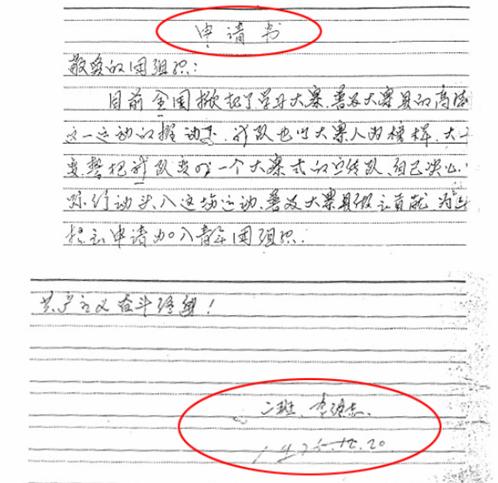 申请书
敬爱的团组织：
目前全国掀起了学习大寨、普及大寨县的高潮
这一运动的推动下，我队也以大寨人为榜样，大
变，誓把我队变成一个大寨式的宣传队，自己决心
际行动投入这场运动，普及大寨县做出贡献，为
提出申请加入青年团组织.
共产主义奋斗终身！
二班
12.20